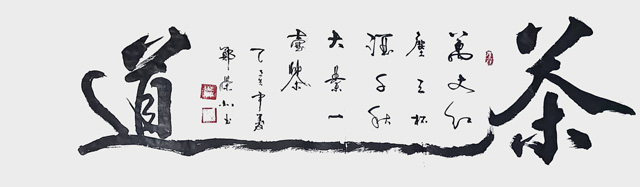 茶道
萬丈紅
塵三杯
酒千秋
大業一
壺茶